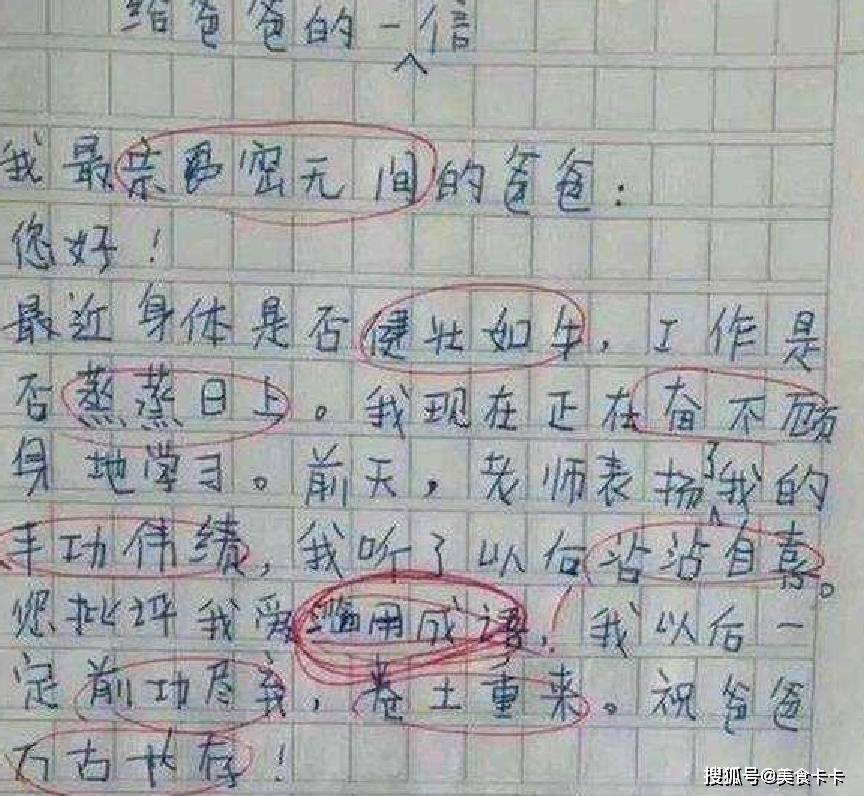 给爸爸的一信
我最亲密无间的爸爸：
您好！
最近身体是否健壮如牛，工作是
否蒸蒸日上。我现在正在奋不顾
身地学习。前天，老师表扬了我的
丰功伟绩，我听了以后沾沾自喜。
您批评我爱滥用成语，我以后一
定前功尽弃，卷土重来。祝爸爸
万古长存！
搜狐号@美食卡卡